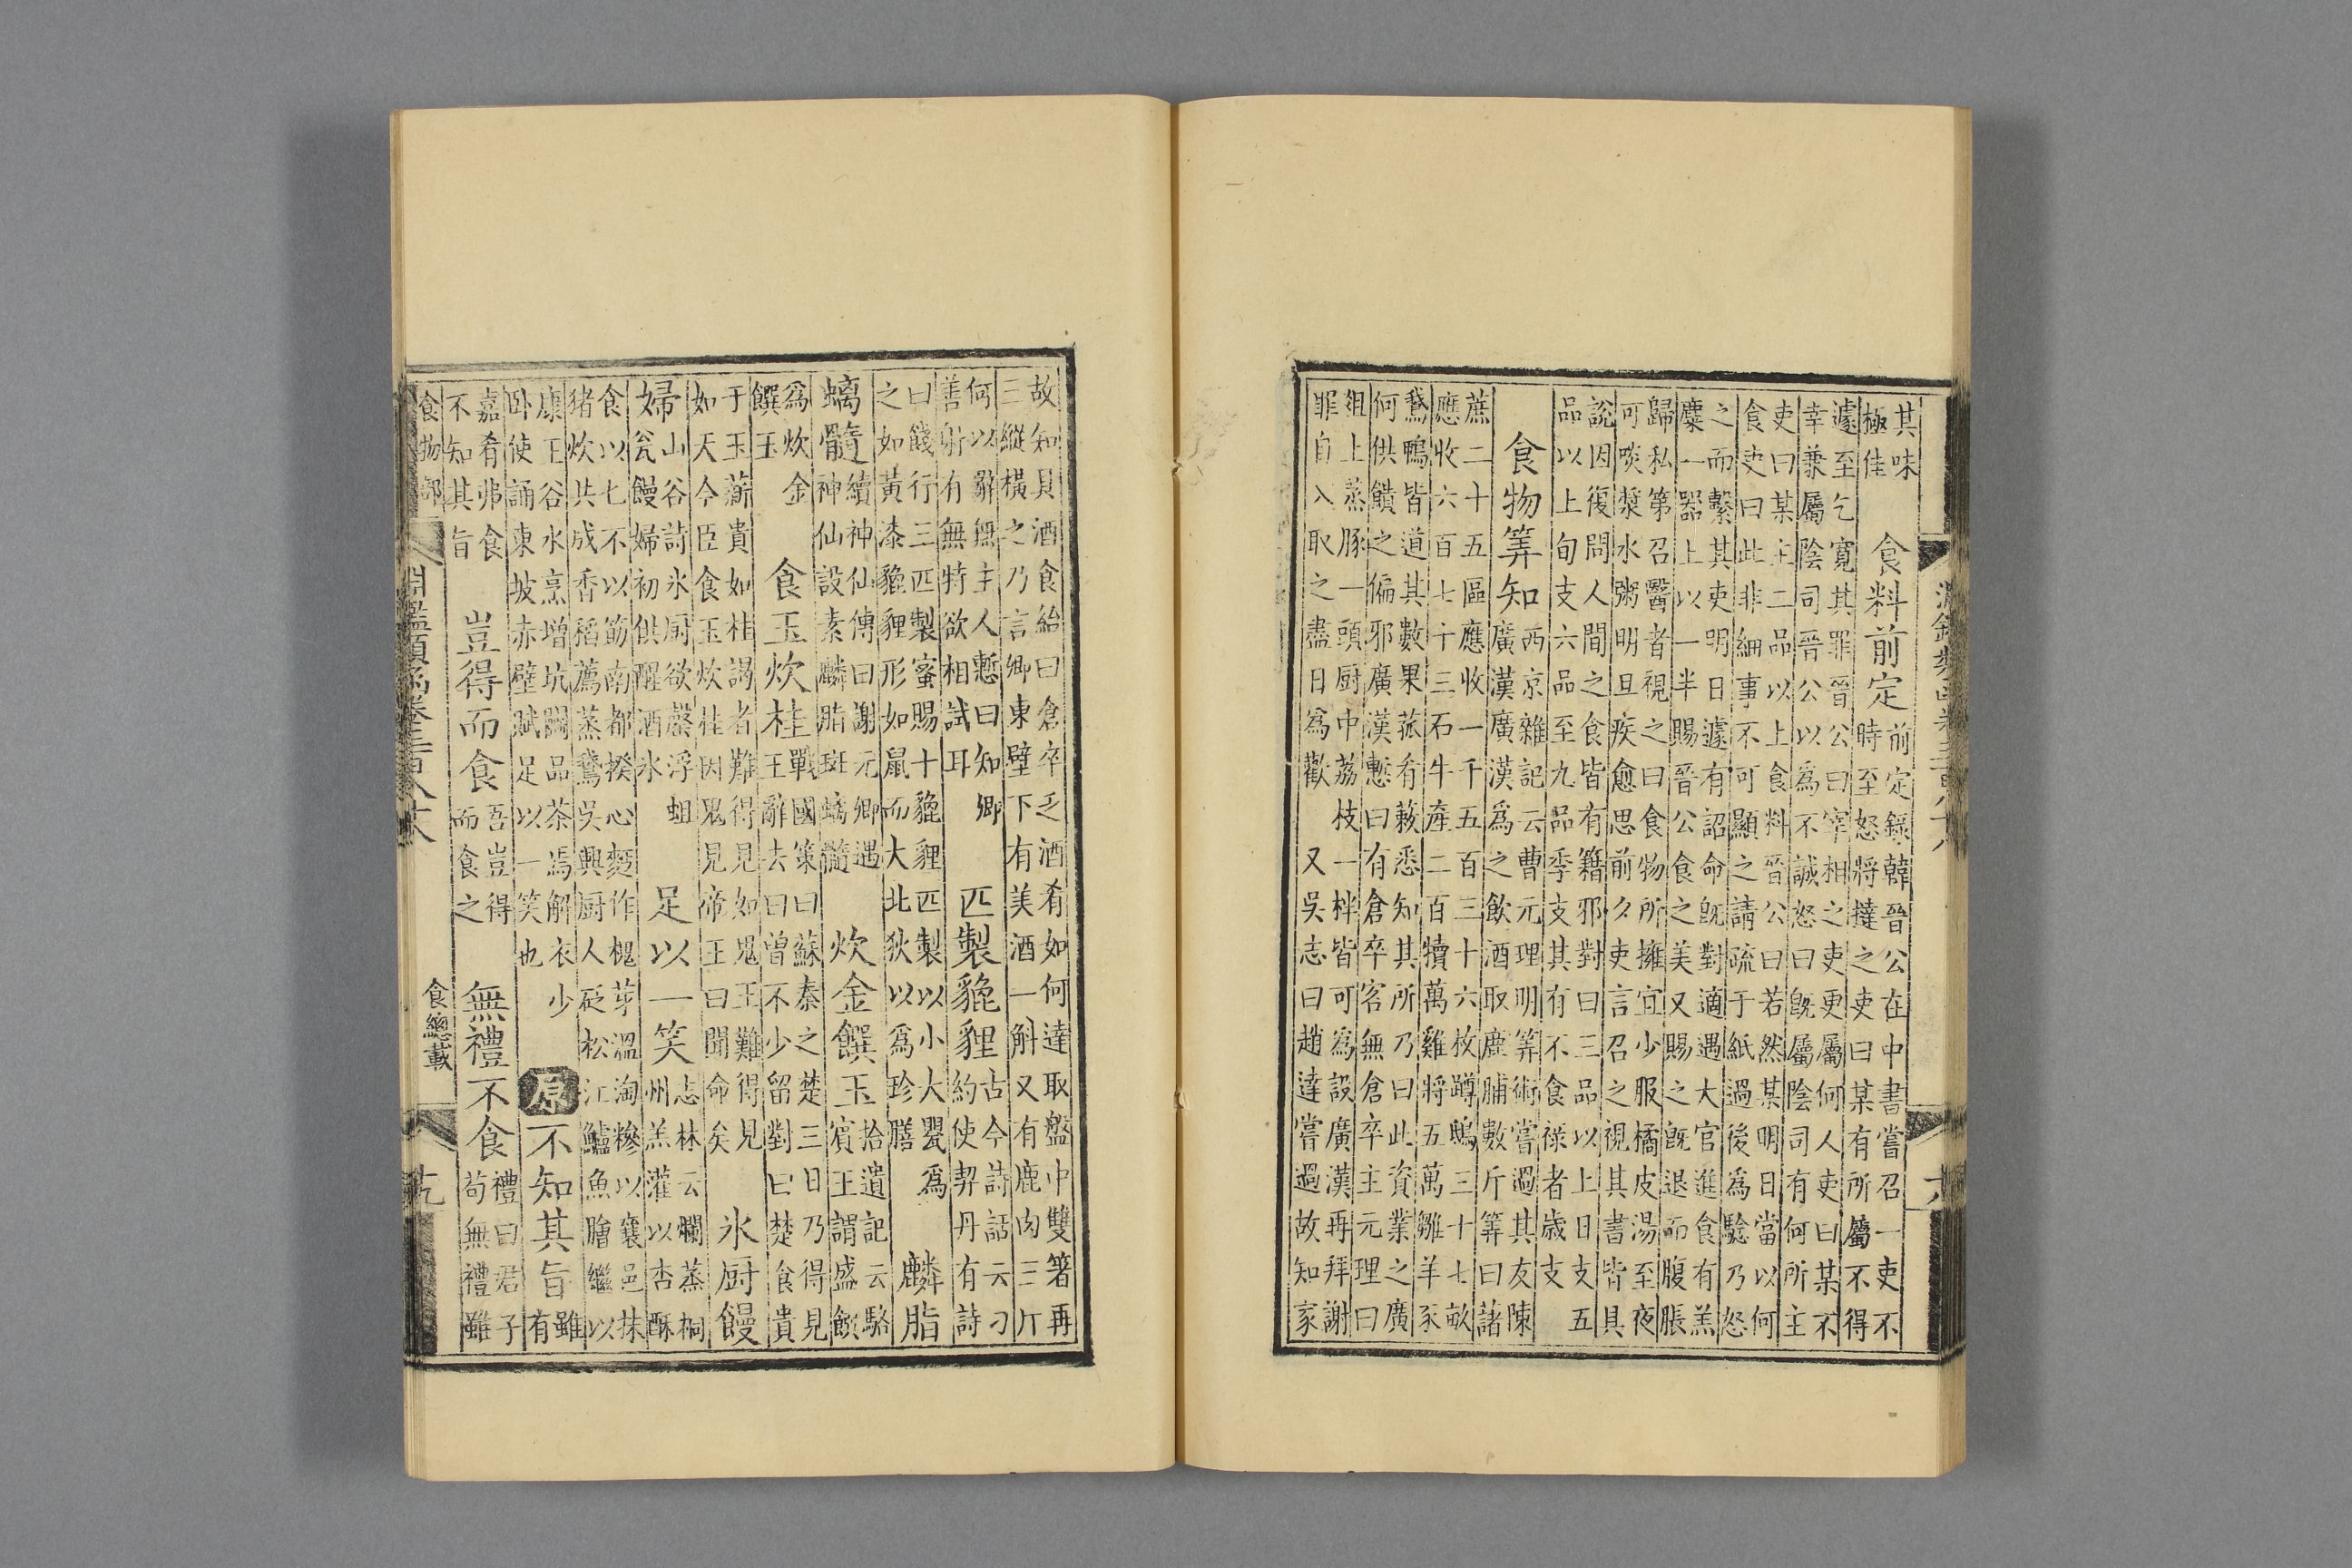 其味
極佳
食料前定
前定錄韓晉公在中書嘗召一吏不
時至怒將撻之吏曰某有所屬不得
遽至乞寬其罪晉公曰宰相之吏更屬何人吏曰某不
幸兼屬陰司晉公以爲不誠怒曰旣屬陰司有何所主
吏曰某主三品以上食料晉公曰若然某明日當以何
食吏曰此非細事不可顯之請疏于紙過後爲驗乃怒
之而繫其吏明日遽有詔命旣對適遇大官進食有羔
麋一器上以一半賜晉公食之美又賜之旣退而腹脹
歸私第召醫者視之曰食物所擁宜少服橘皮湯至夜
可啖漿水粥明旦疾愈思前夕吏言召之視其書皆具
說因復問人間之食皆有籍邪對曰三品以上日支五
品以上旬支六品至九品季支其有不食祿者歲支
食物筭知
西京雜記云曹元理明筭術嘗過其友陳
廣漢廣漢爲之飲酒取鹿脯數斤筭曰諸
蔗二十五區應收一千五百三十六枚蹲鴟三十七畝
應收六百七十三石牛產二百犢萬雞將五萬雛羊豕
鵞鴨皆道其數果蓏肴蔌悉知其所乃曰此資業之廣
何供饋之偏邪廣漢慙曰有倉卒客無倉卒主元理曰
俎上蒸豚一頭厨中荔枝一柈皆可爲設廣漢再拜謝
罪自入取之盡日爲歡
又吳志曰趙達嘗過故知家
故知具酒食給曰倉卒乏酒肴如何達取盤中雙箸再
三縱橫之乃言卿東壁下有美酒一斛又有鹿肉三斤
何以辭無主人慙曰知卿
善射有無特欲相試耳
匹製貔貍
古今詩話云刁
約使契丹有詩
曰餞行三匹製蜜賜十貔貍匹製以小大甖爲
之如黃漆貔貍形如鼠而大北狄以爲珍膳
麟脂
螭髓
續神仙傳曰謝元卿遇
神仙設素麟脂斑螭髓
炊金饌玉
拾遺記云駱
賓王謂盛飯
爲炊金
饌玉
食玉炊桂
戰國策曰蘇秦之楚三日乃得見
王辭去曰曾不少留對曰楚食貴
于玉薪貴如桂謁者難得見如鬼王難得見
如天今臣食玉炊桂因鬼見帝王曰聞命矣
氷厨饅
婦
山谷詩氷厨欲罄浮蛆
瓮饅婦初供醒酒氷
足以一笑
志林云爛蒸桐
州羔灌以杏酥
食以七不以筯南都撥心麪作槐芽溫淘糝以襄邑抹
猪炊共成香稻薦蒸鵞吳興厨人斫松江鱸魚膾繼以
康王谷水烹增坑鬬品茶焉解衣少
臥使誦東坡赤壁賦足以一笑也
原
不知其旨
雖有
嘉肴弗食
不知其旨
豈得而食
吾豈得
而食之
無禮不食
禮曰君子
苟無禮雖
食物部
淵鑑類函卷三百八十八
食總載